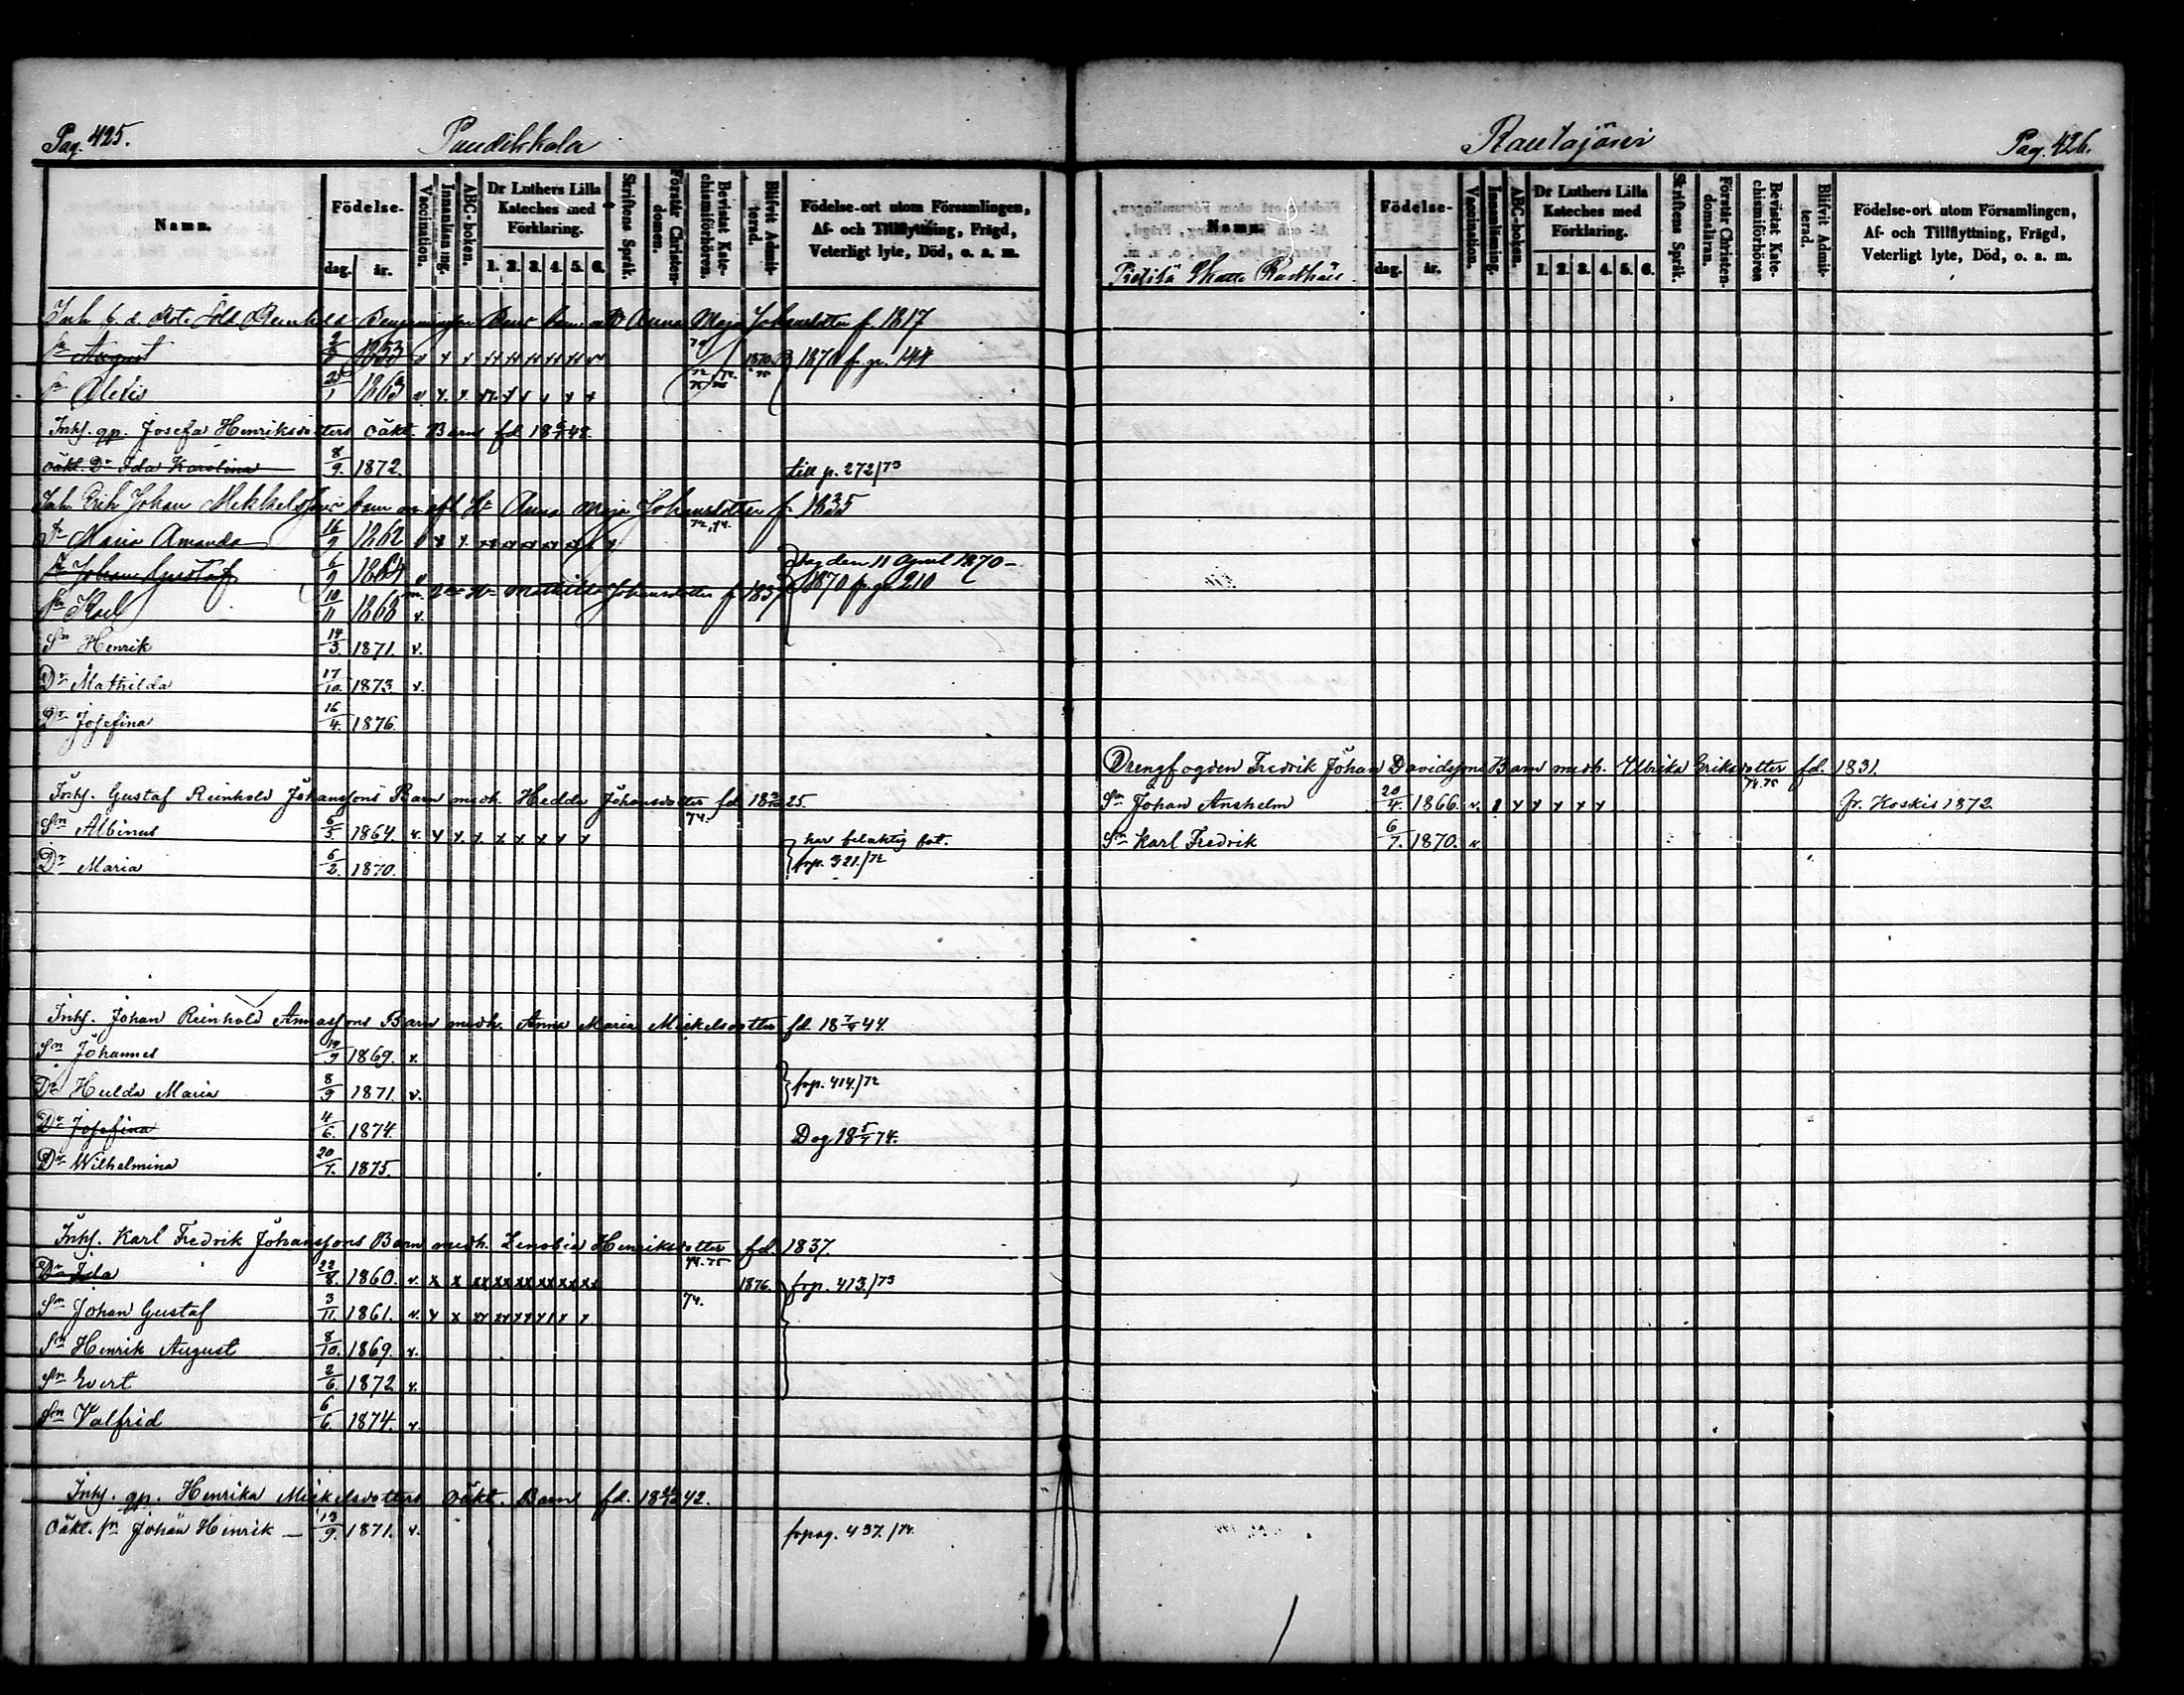 Pag. 425.
Puudikkala
Namn.
Födelse-
dag. år.
Vaccination.
Innanläsning.
ABC-boken.
Dr Luthers Lilla Kateches med Förklaring.
1. 2. 3. 4. 5. 6.
Skriftens Språk.
Förstår Christendomen.
Bevistat Katechismiförhören.
Blifvit Admitterad.
Födelse-ort utom Församlingen, Af- och Tillflyttning, Frägd, Veterligt lyte, Död, o. a. m.
Anna Maja Johansdotter f. 1817
Sn August 1853 v 1870 1870 fr. p. 144
Sn Alexis 25/1 1863 v
Inhs. qp. Josefa Henriksdotters oäkt. Barn fd 18 48.
oäkt. Dr Ida Karolina 8/9. 1872. till p. 272/73
Inh. Erik Johan Mikkelssons barn m afl. H. Anna Maja Johansdotter f. 1835
Dr Maria Amanda 16/9 1862 72,74.
Sn Johan Gustaf 6/9 1864 v Dog den 11 April 1870 –
m. 2dra H. Mathilda Johansdotter f. 1837 1870 fr. p. 210
Sn Karl 10/11 1868 v.
Sn Henrik 14/3. 1871. v.
Dr Mathilda 17/10. 1873 v.
Dr Josefina 16/4. 1876.
Inhs. Gustaf Reinhold Johanssons Barn medh. Hedda Johansdotter fd 18 25.
Sn Albinus 6/5. 1864. v. 74. har felaktig fot.
Dr Maria 6/2. 1870. frp. 321./72
Inhs. Johan Reinhold Annassons Barn medh. Anna Maria Mickelsdotter fd 18 7/9 44.
Sn Johannes 19/9 1869. v.
Dr Hulda Maria 8/9 1871. v. frp. 414./72
Dr Josefina 4/6. 1874. Dog 18 5/7 74.
Dr Wilhelmina 20/7. 1875.
Inhs. Karl Fredrik Johanssons Barn medh. Zenobia Henriksdotter fd. 1837.
Dr Ida 22/8. 1860. v. 74.75 1876. frp. 413./73
Sn Johan Gustaf 3/11. 1861. v. 74.
Sn Henrik August 8/10. 1869. v.
Sn Evert 2/6. 1872 v.
Sn Valfrid 6/6. 1874. v.
Inhs. qp. Henrika Mickelsdotters oäkt. Barn fd. 18 42.
Oäkt. sn Johan Henrik – 13/9. 1871. v. frpag. 437./74.
Rautajärvi
Pag. 426.
Namn.
Födelse-
dag. år.
Vaccination.
Innanläsning.
ABC-boken.
Dr Luthers Lilla Kateches med Förklaring.
1. 2. 3. 4. 5. 6.
Skriftens Språk.
Förstår Christendomsläran.
Bevistat Katechismiförhören
Blifvit Admitterad.
Födelse-ort utom Församlingen, Af- och Tillflyttning, Frägd, Veterligt lyte, Död, o. a. m.
Drengfogden Fredrik Johan Davidssons Barn medh. Ulbrika Eriksdotter fd. 1831.
Sn Johan Anshelm 20/4. 1866. v. 74.75 fr. Koskis 1872
Sn Karl Fredrik 6/7. 1870. v.